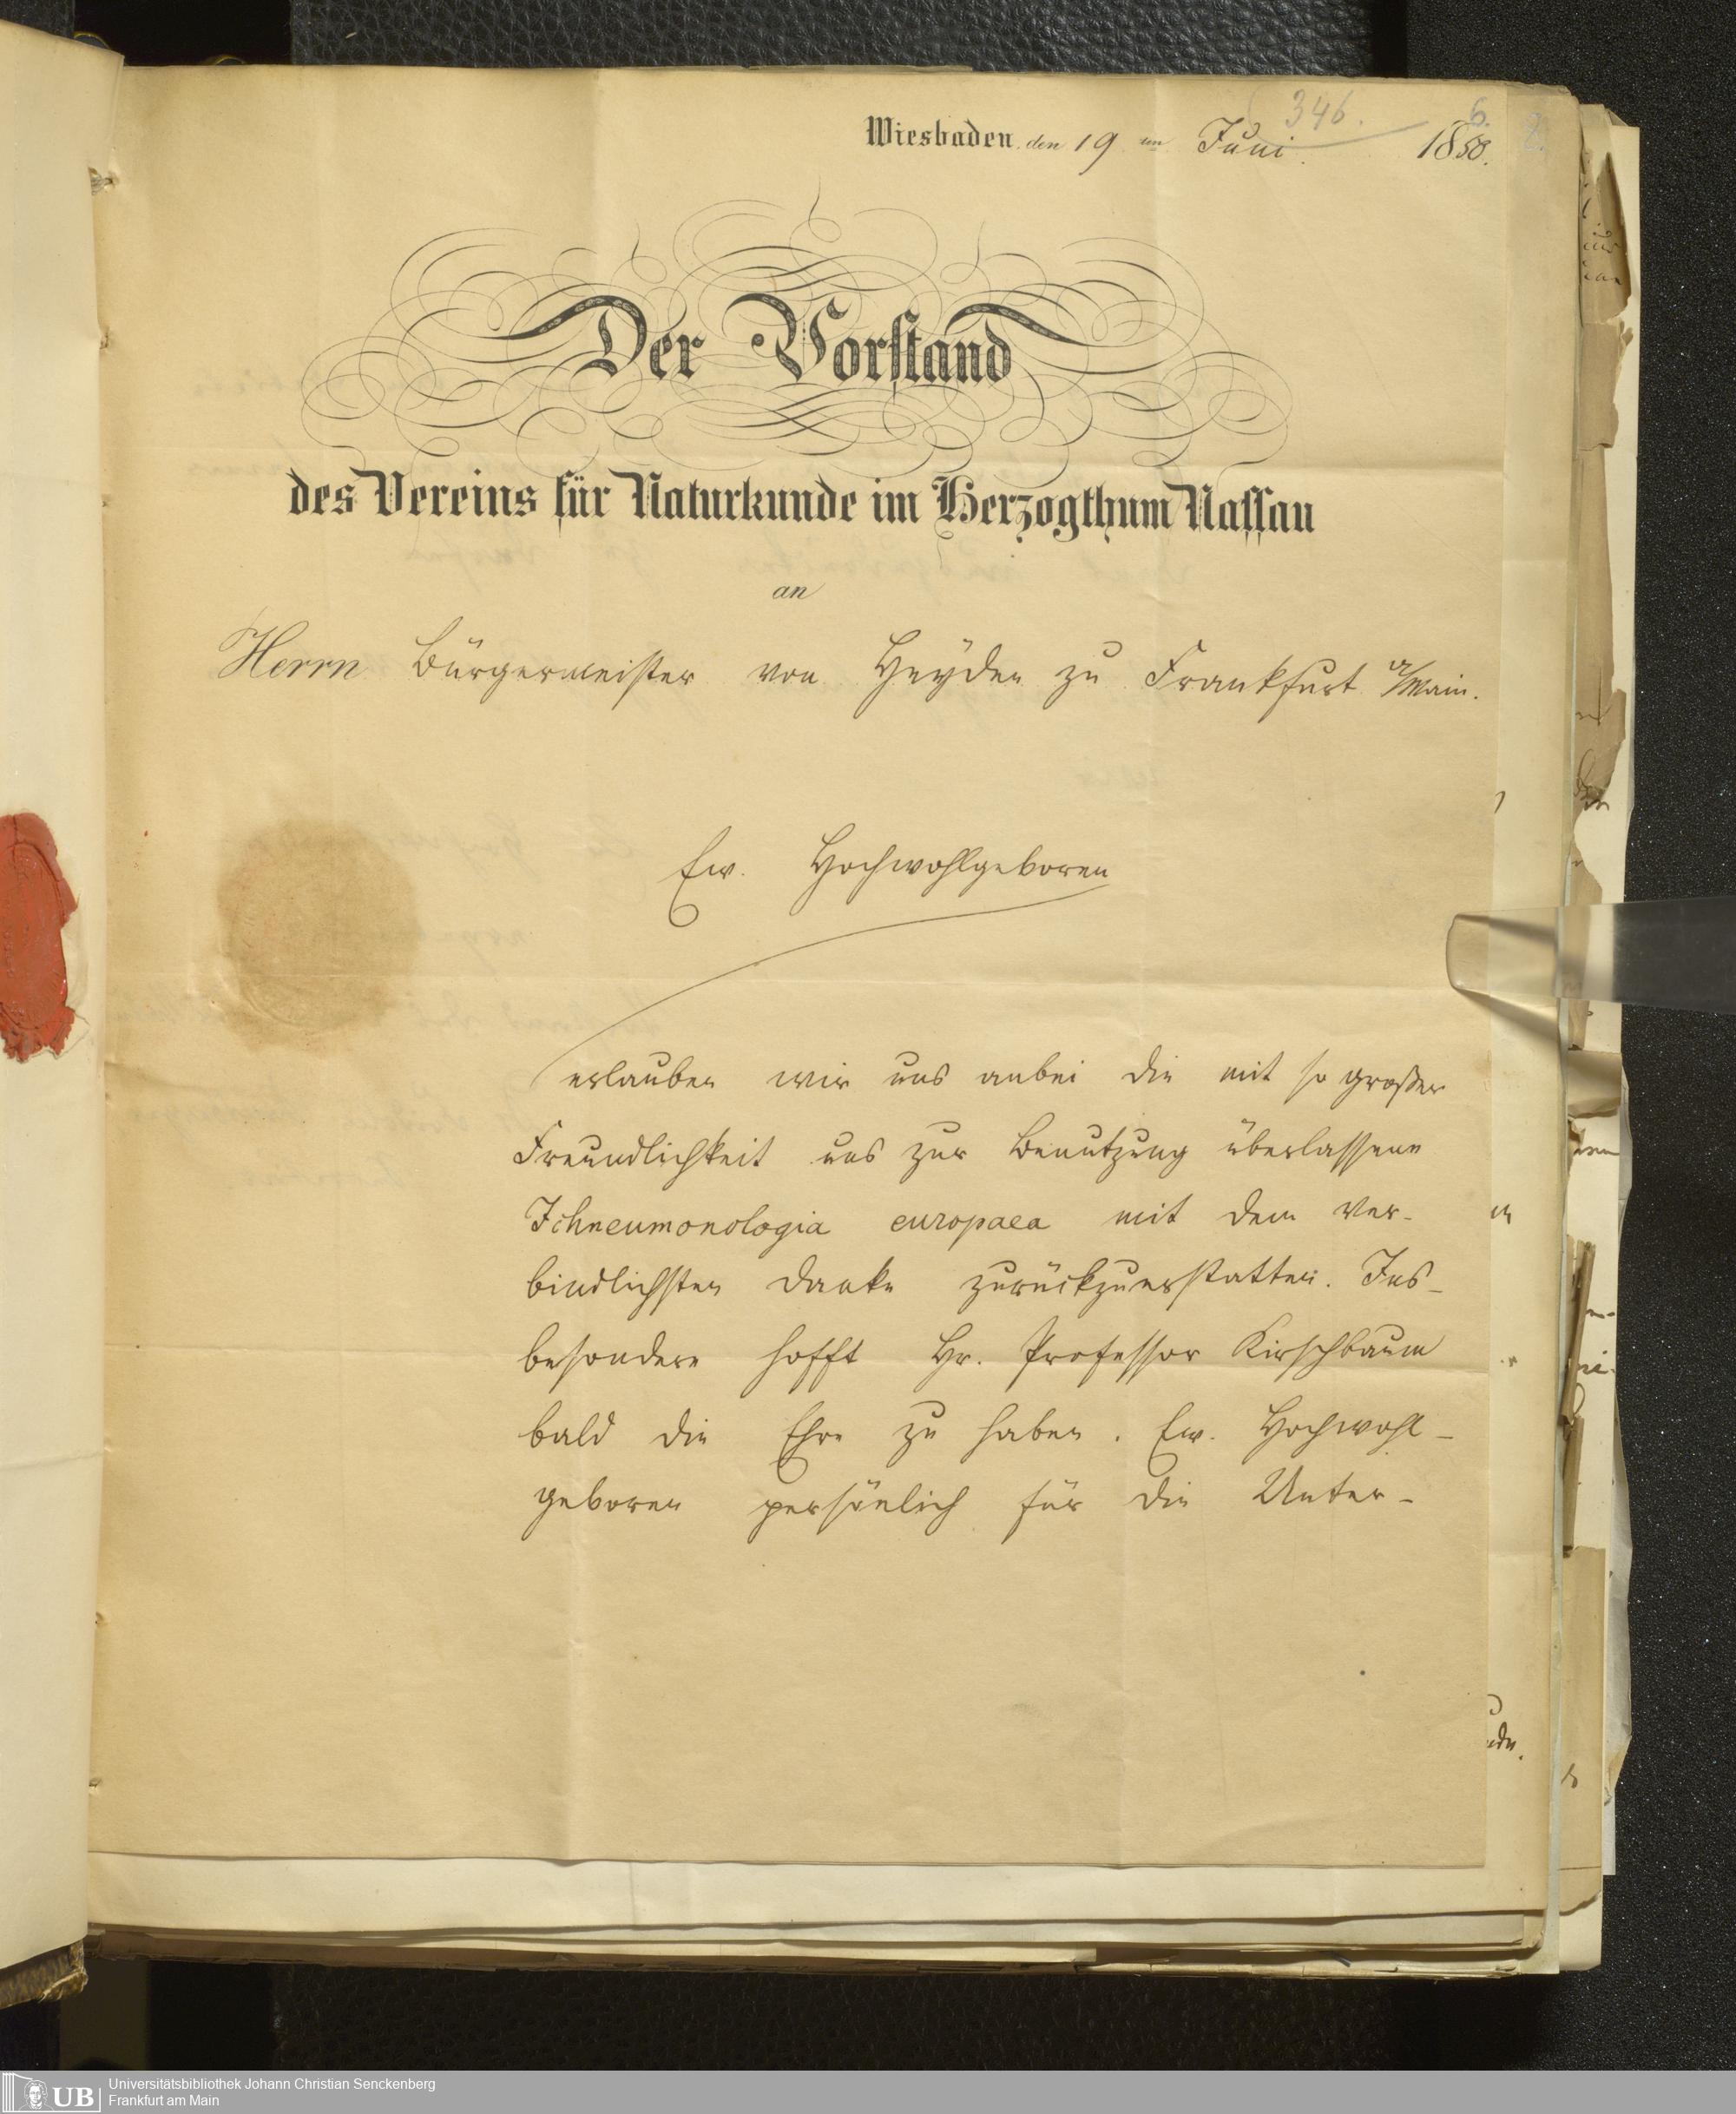 346.
6.
Wiesbaden, den 19ten Juni. 1850.
Der Vorstand
des Vereins für Naturkunde im Herzogthum Nassau
an
Herrn Bürgermeister von Heyden zu Frankfurt a/Main.
Ew. Hochwohlgeboren
erlauben wir uns anbei die mit so großer
Freundlichkeit uns zur Benutzung überlassene
Ichneumonologia europaea mit dem ver-
bindlichsten Danke zurückzuerstatten. Ins-
besondere hofft Hr. Professor Kirschbaum
bald die Ehre zu haben, Ew. Hochwohl-
geboren persönlich für die Unter-
UB Universitätsbibliothek Johann Christian Senckenberg
Frankfurt am Main